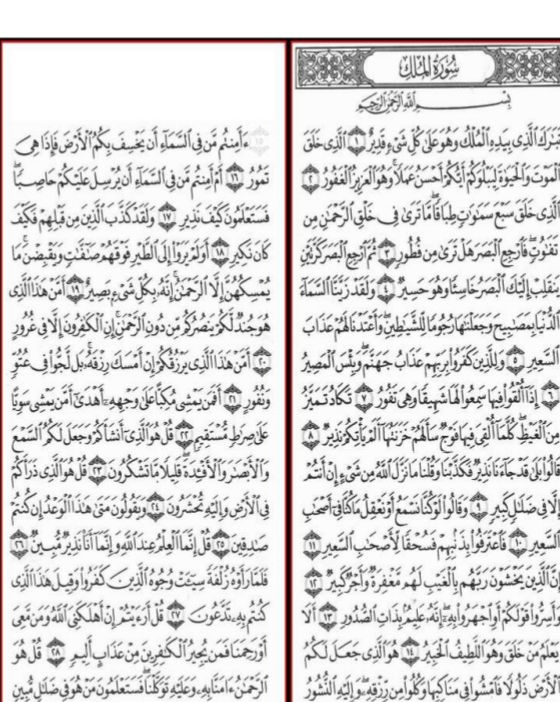 سُورَةُ المُلْكِ
بِسْمِ اللَّهِ الرَّحْمَٰنِ الرَّحِيمِ
تَبَٰرَكَ ٱلَّذِى بِيَدِهِ ٱلْمُلْكُ وَهُوَ عَلَىٰ كُلِّ شَىْءٍ قَدِيرٌ ١ ٱلَّذِى خَلَقَ
ٱلْمَوْتَ وَٱلْحَيَوٰةَ لِيَبْلُوَكُمْ أَيُّكُمْ أَحْسَنُ عَمَلًا وَهُوَ ٱلْعَزِيزُ ٱلْغَفُورُ ٢
ٱلَّذِى خَلَقَ سَبْعَ سَمَٰوَٰتٍ طِبَاقًا مَّا تَرَىٰ فِى خَلْقِ ٱلرَّحْمَٰنِ مِن
تَفَٰوُتٍ فَٱرْجِعِ ٱلْبَصَرَ هَلْ تَرَىٰ مِن فُطُورٍ ٣ ثُمَّ ٱرْجِعِ ٱلْبَصَرَ كَرَّتَيْنِ
يَنقَلِبْ إِلَيْكَ ٱلْبَصَرُ خَاسِئًا وَهُوَ حَسِيرٌ ٤ وَلَقَدْ زَيَّنَّا ٱلسَّمَآءَ
ٱلدُّنْيَا بِمَصَٰبِيحَ وَجَعَلْنَٰهَا رُجُومًا لِّلشَّيَٰطِينِ وَأَعْتَدْنَا لَهُمْ عَذَابَ
ٱلسَّعِيرِ ٥ وَلِلَّذِينَ كَفَرُوا۟ بِرَبِّهِمْ عَذَابُ جَهَنَّمَ وَبِئْسَ ٱلْمَصِيرُ
٦ إِذَآ أُلْقُوا۟ فِيهَا سَمِعُوا۟ لَهَا شَهِيقًا وَهِىَ تَفُورُ ٧ تَكَادُ تَمَيَّزُ
مِنَ ٱلْغَيْظِ كُلَّمَآ أُلْقِىَ فِيهَا فَوْجٌ سَأَلَهُمْ خَزَنَتُهَآ أَلَمْ يَأْتِكُمْ نَذِيرٌ ٨
قَالُوا۟ بَلَىٰ قَدْ جَآءَنَا نَذِيرٌ فَكَذَّبْنَا وَقُلْنَا مَا نَزَّلَ ٱللَّهُ مِن شَىْءٍ إِنْ أَنتُمْ
إِلَّا فِى ضَلَٰلٍ كَبِيرٍ ٩ وَقَالُوا۟ لَوْ كُنَّا نَسْمَعُ أَوْ نَعْقِلُ مَا كُنَّا فِىٓ أَصْحَٰبِ
ٱلسَّعِيرِ ١٠ فَٱعْتَرَفُوا۟ بِذَنۢبِهِمْ فَسُحْقًا لِّأَصْحَٰبِ ٱلسَّعِيرِ ١١
إِنَّ ٱلَّذِينَ يَخْشَوْنَ رَبَّهُم بِٱلْغَيْبِ لَهُم مَّغْفِرَةٌ وَأَجْرٌ كَبِيرٌ ١٢
وَأَسِرُّوا۟ قَوْلَكُمْ أَوِ ٱجْهَرُوا۟ بِهِۦٓ إِنَّهُۥ عَلِيمٌۢ بِذَاتِ ٱلصُّدُورِ ١٣ أَلَا
يَعْلَمُ مَنْ خَلَقَ وَهُوَ ٱللَّطِيفُ ٱلْخَبِيرُ ١٤ هُوَ ٱلَّذِى جَعَلَ لَكُمُ
ٱلْأَرْضَ ذَلُولًا فَٱمْشُوا۟ فِى مَنَاكِبِهَا وَكُلُوا۟ مِن رِّزْقِهِۦ وَإِلَيْهِ ٱلنُّشُورُ
١٥ ءَأَمِنتُم مَّن فِى ٱلسَّمَآءِ أَن يَخْسِفَ بِكُمُ ٱلْأَرْضَ فَإِذَا هِىَ
تَمُورُ ١٦ أَمْ أَمِنتُم مَّن فِى ٱلسَّمَآءِ أَن يُرْسِلَ عَلَيْكُمْ حَاصِبًا
فَسَتَعْلَمُونَ كَيْفَ نَذِيرِ ١٧ وَلَقَدْ كَذَّبَ ٱلَّذِينَ مِن قَبْلِهِمْ فَكَيْفَ
كَانَ نَكِيرِ ١٨ أَوَلَمْ يَرَوْا۟ إِلَى ٱلطَّيْرِ فَوْقَهُمْ صَٰٓفَّٰتٍ وَيَقْبِضْنَ مَا
يُمْسِكُهُنَّ إِلَّا ٱلرَّحْمَٰنُ إِنَّهُۥ بِكُلِّ شَىْءٍۭ بَصِيرٌ ١٩ أَمَّنْ هَٰذَا ٱلَّذِى
هُوَ جُندٌ لَّكُمْ يَنصُرُكُم مِّن دُونِ ٱلرَّحْمَٰنِ إِنِ ٱلْكَٰفِرُونَ إِلَّا فِى غُرُورٍ
٢٠ أَمَّنْ هَٰذَا ٱلَّذِى يَرْزُقُكُمْ إِنْ أَمْسَكَ رِزْقَهُۥ بَل لَّجُّوا۟ فِى عُتُوٍّ
وَنُفُورٍ ٢١ أَفَمَن يَمْشِى مُكِبًّا عَلَىٰ وَجْهِهِۦٓ أَهْدَىٰٓ أَمَّن يَمْشِى سَوِيًّا
عَلَىٰ صِرَٰطٍ مُّسْتَقِيمٍ ٢٢ قُلْ هُوَ ٱلَّذِىٓ أَنشَأَكُمْ وَجَعَلَ لَكُمُ ٱلسَّمْعَ
وَٱلْأَبْصَٰرَ وَٱلْأَفْـِٔدَةَ قَلِيلًا مَّا تَشْكُرُونَ ٢٣ قُلْ هُوَ ٱلَّذِى ذَرَأَكُمْ
فِى ٱلْأَرْضِ وَإِلَيْهِ تُحْشَرُونَ ٢٤ وَيَقُولُونَ مَتَىٰ هَٰذَا ٱلْوَعْدُ إِن كُنتُمْ
صَٰدِقِينَ ٢٥ قُلْ إِنَّمَا ٱلْعِلْمُ عِندَ ٱللَّهِ وَإِنَّمَآ أَنَا۠ نَذِيرٌ مُّبِينٌ ٢٦
فَلَمَّا رَأَوْهُ زُلْفَةً سِيٓـَٔتْ وُجُوهُ ٱلَّذِينَ كَفَرُوا۟ وَقِيلَ هَٰذَا ٱلَّذِى
كُنتُم بِهِۦ تَدَّعُونَ ٢٧ قُلْ أَرَءَيْتُمْ إِنْ أَهْلَكَنِىَ ٱللَّهُ وَمَن مَّعِىَ
أَوْ رَحِمَنَا فَمَن يُجِيرُ ٱلْكَٰفِرِينَ مِنْ عَذَابٍ أَلِيمٍ ٢٨ قُلْ هُوَ
ٱلرَّحْمَٰنُ ءَامَنَّا بِهِۦ وَعَلَيْهِ تَوَكَّلْنَا فَسَتَعْلَمُونَ مَنْ هُوَ فِى ضَلَٰلٍ مُّبِينٍ